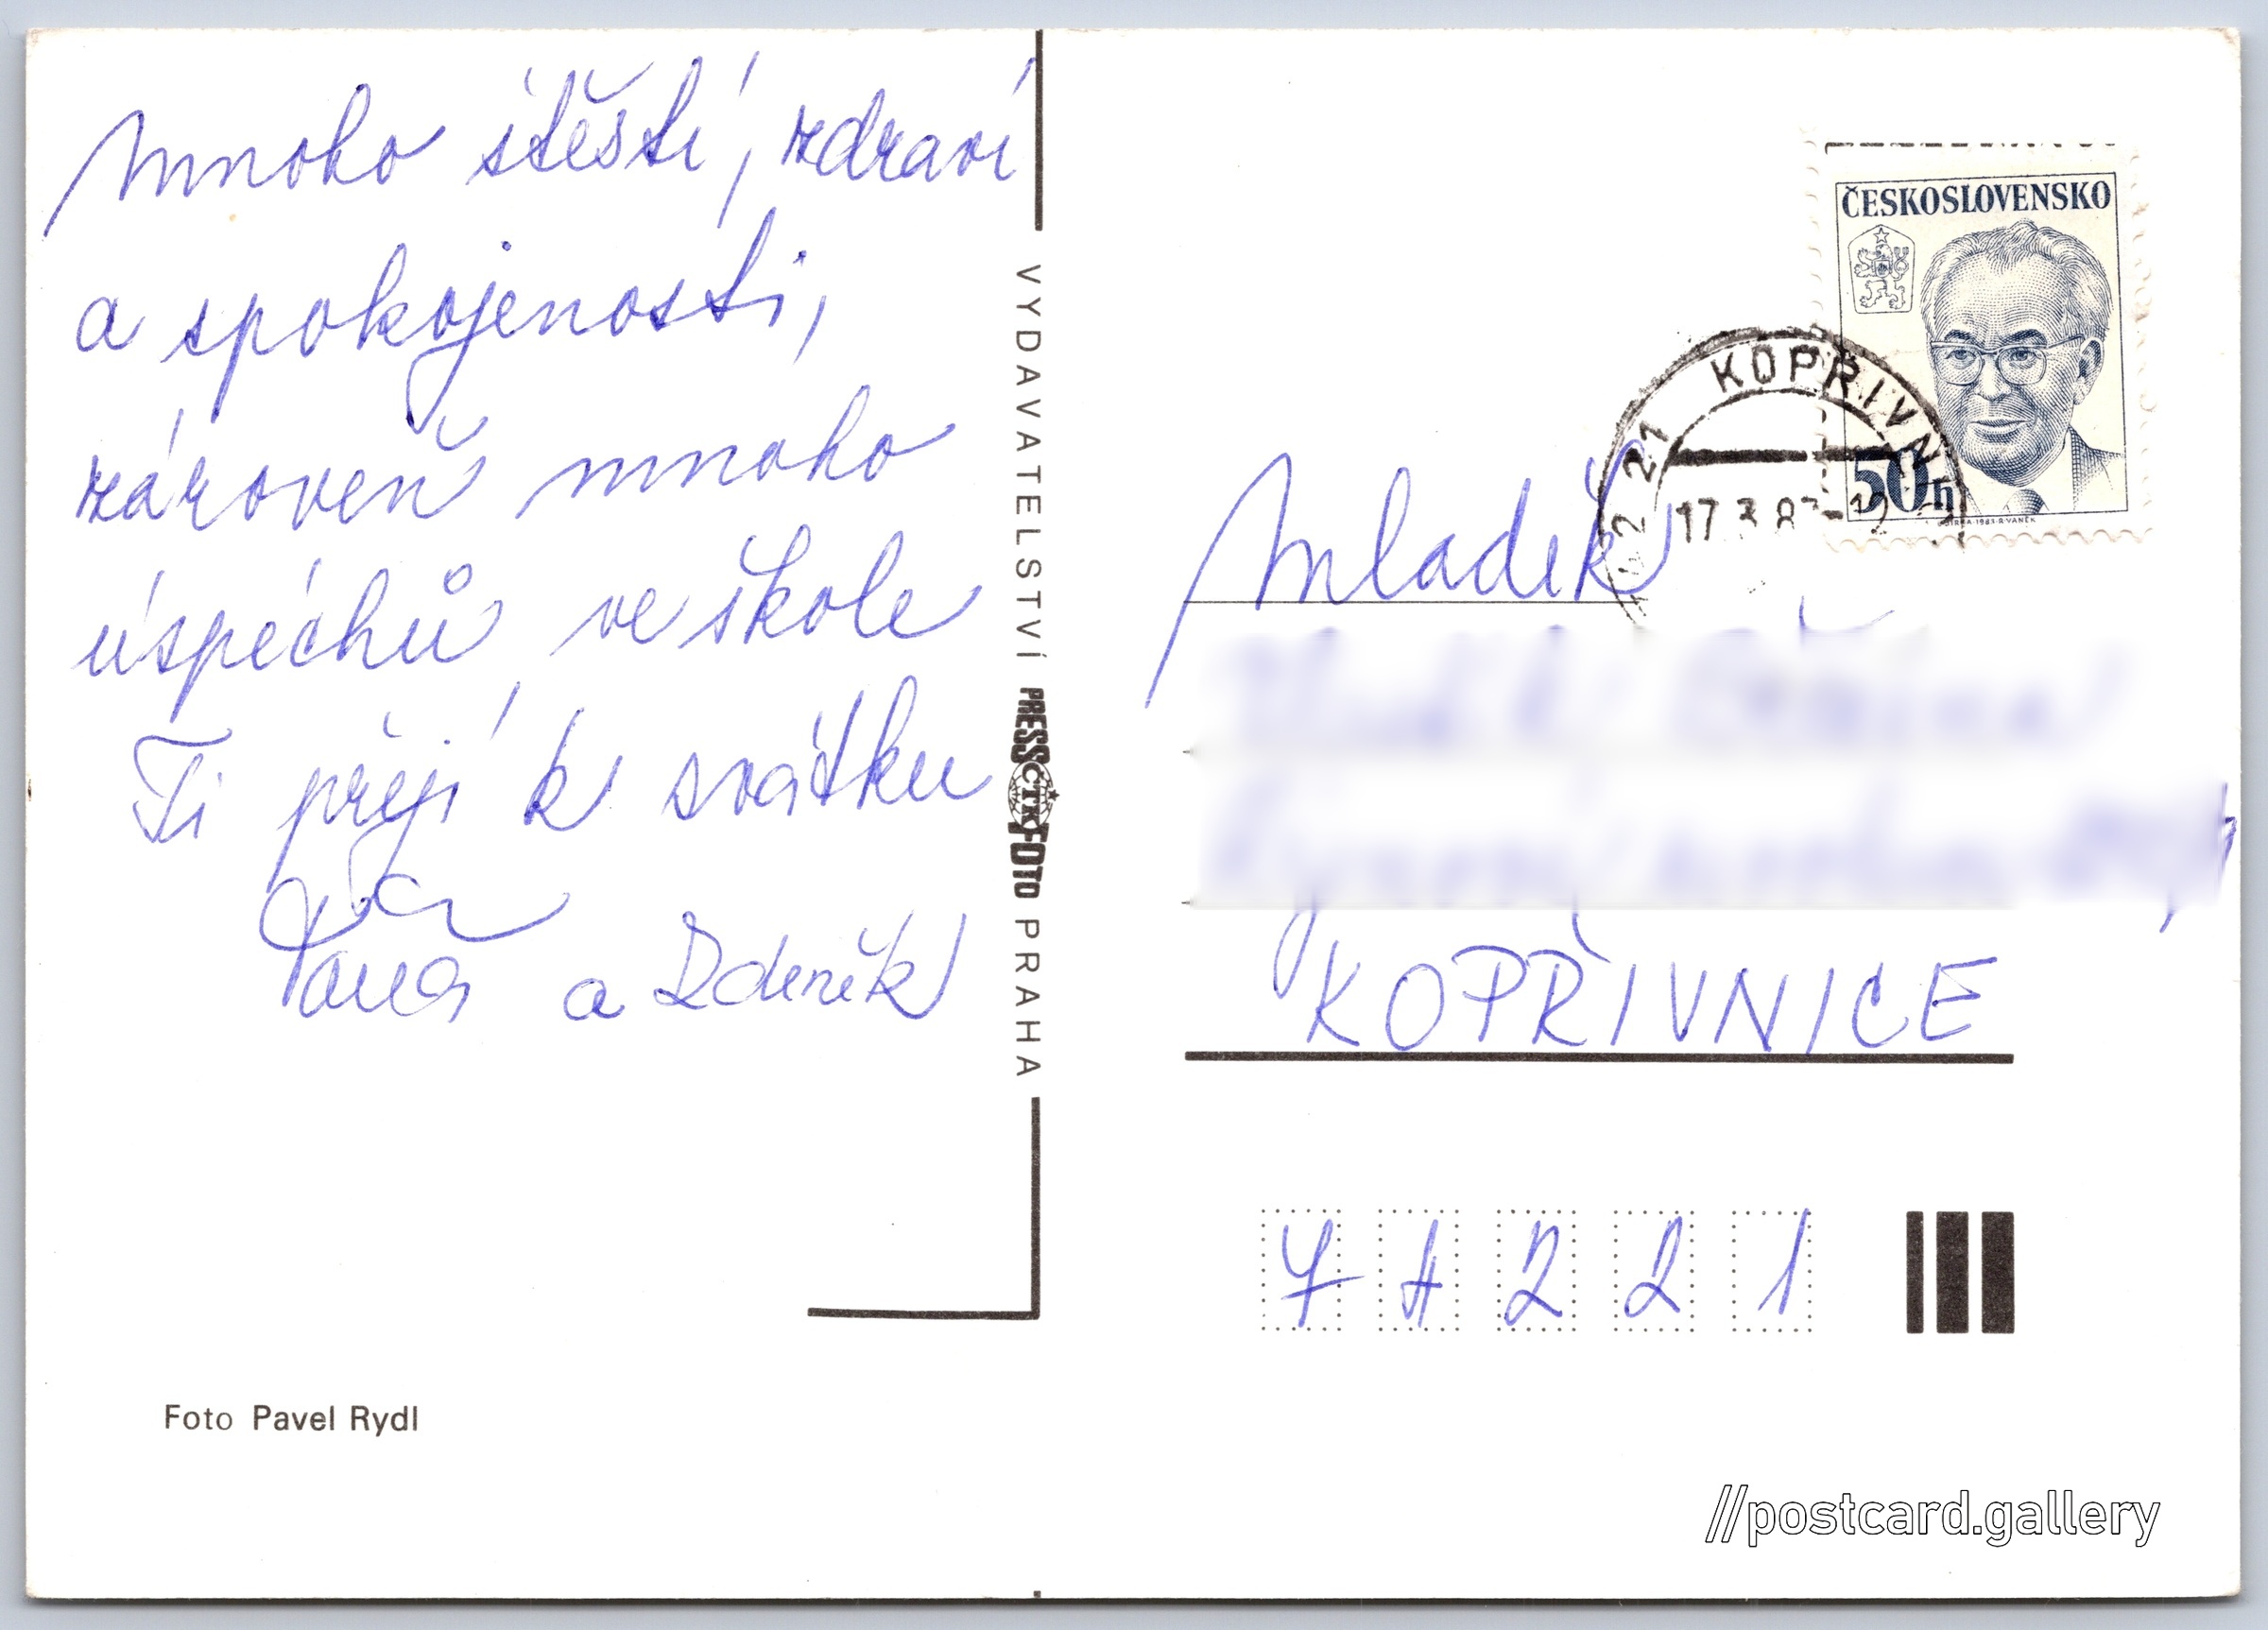 Mnoho štěstí, zdraví
a spokojenosti,
zároveň mnoho
úspěchů ve škole
Ti přejí k svátku
Jana a Zdeněk
VYDAVATELSTVÍ PRESSČTKFOTO PRAHA
Foto Pavel Rydl
ČESKOSLOVENSKO
50h
KOPŘIVNI
742 21
17.3.8
Mladek
KOPŘIVNICE
7 4 2 2 1
//postcard.gallery